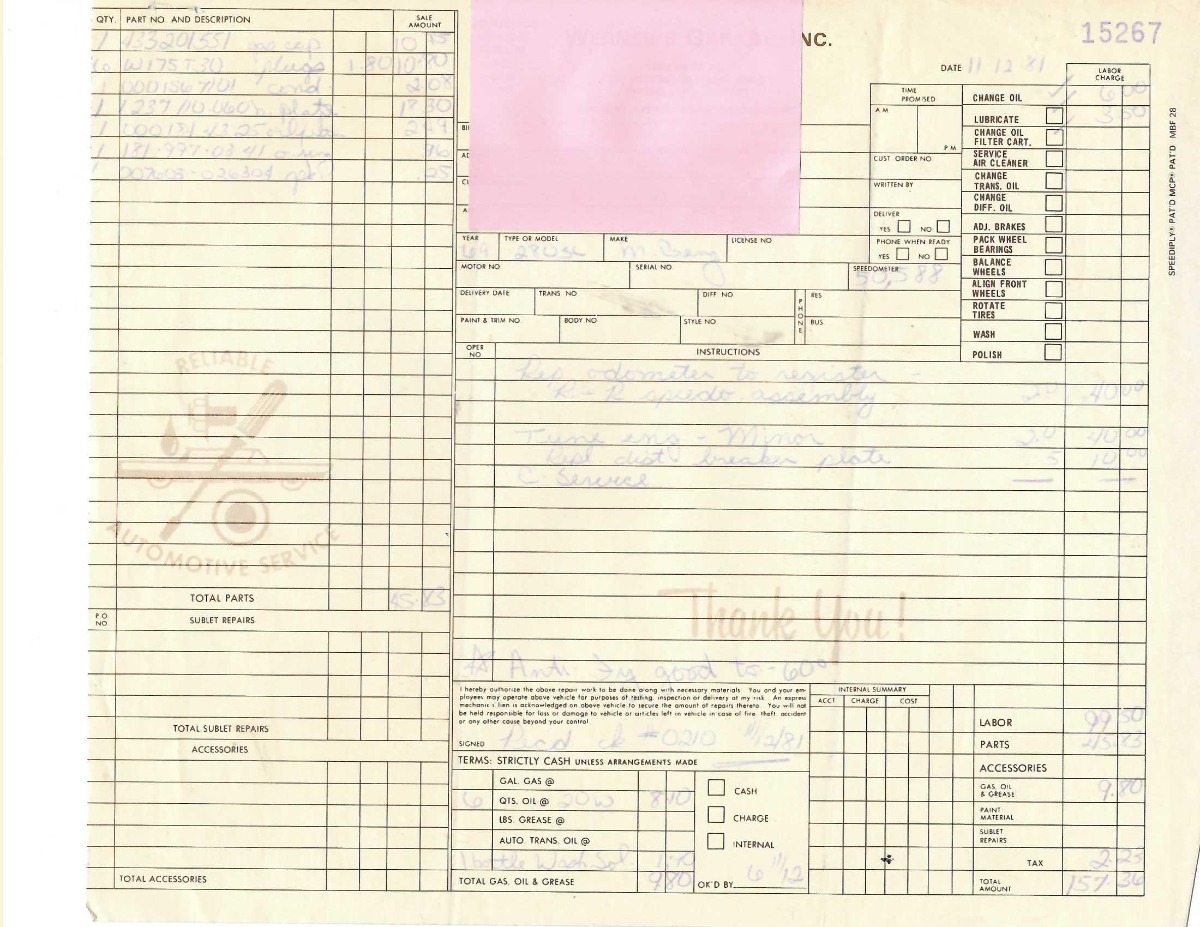 INC.
15267
DATE 11 12 81
QTY. PART NO. AND DESCRIPTION SALE AMOUNT
1 433201551 gas cap 10.95
6 W175T30 plugs 1.80 10.80
1 0001567101 cond. 2.08
1 1237 110 060n plate 18.30
1 2.49
1 181-997-03 41 o ring .96
.25
TOTAL PARTS 45.83
P.O. NO SUBLET REPAIRS
TOTAL SUBLET REPAIRS
ACCESSORIES
TOTAL ACCESSORIES
RELIABLE
AUTOMOTIVE SERVICE
TIME PROMISED
A M
P M
CUST ORDER NO
WRITTEN BY
DELIVER
YES NO
PHONE WHEN READY
YES NO
LABOR CHARGE
CHANGE OIL 6.00
LUBRICATE 3.50
CHANGE OIL FILTER CART.
SERVICE AIR CLEANER
CHANGE TRANS. OIL
CHANGE DIFF. OIL
ADJ. BRAKES
PACK WHEEL BEARINGS
BALANCE WHEELS
ALIGN FRONT WHEELS
ROTATE TIRES
WASH
POLISH
SPEEDIPLY® PAT'D MCP® PAT'D MBF 28
YEAR TYPE OR MODEL MAKE LICENSE NO
69 280SL M. Benz
MOTOR NO SERIAL NO SPEEDOMETER
50,588
DELIVERY DATE TRANS. NO DIFF. NO PHONE RES
PAINT & TRIM NO BODY NO STYLE NO BUS
OPER NO INSTRUCTIONS
Rep odometer to register -
R-R speedo assembly 20 40.00
Tune eng - Minor 2.0 40.00
Repl dist breaker plate 5 10.00
C Service
Thank You!
Anti-Fz good to -60°
I hereby authorize the above repair work to be done along with necessary materials. You and your em-
ployees may operate above vehicle for purposes of testing, inspection or delivery at my risk. An express
mechanic's lien is acknowledged on above vehicle to secure the amount of repairs thereto. You will not
be held responsible for loss or damage to vehicle or articles left in vehicle in case of fire, theft, accident
or any other cause beyond your control
SIGNED Recd ck #0210 11/12/81
TERMS: STRICTLY CASH UNLESS ARRANGEMENTS MADE
GAL. GAS @
6 QTS. OIL @ 20W 8.10
LBS. GREASE @
AUTO. TRANS. OIL @
1 bottle Wash Sol. 1.70
TOTAL GAS, OIL & GREASE 9.80
CASH
CHARGE
INTERNAL
OK'D BY 11/12
INTERNAL SUMMARY
ACCT. CHARGE COST
LABOR 99.50
PARTS 45.83
ACCESSORIES
GAS, OIL & GREASE 9.80
PAINT MATERIAL
SUBLET REPAIRS
TAX 2.23
TOTAL AMOUNT 157.36